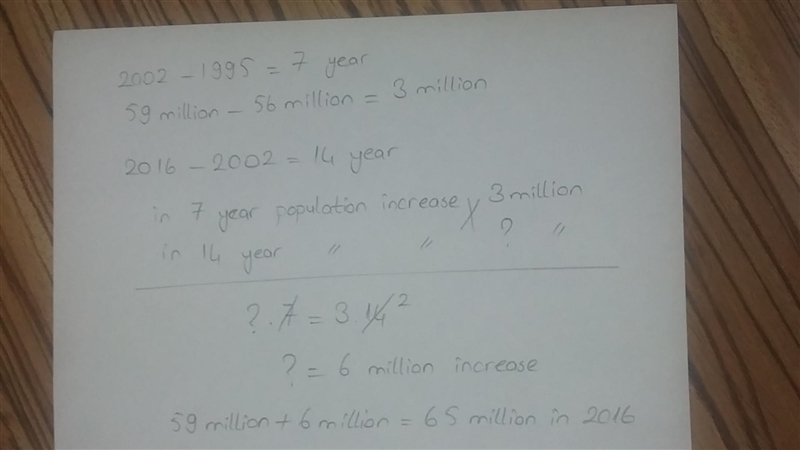 2002 - 1995 = 7 year
59 million - 56 million = 3 million
2016 - 2002 = 14 year
in 7 year population increase 3 million
in 14 year " " ? "
? . 7 = 3 . 14 2
? = 6 million increase
59 million + 6 million = 65 million in 2016